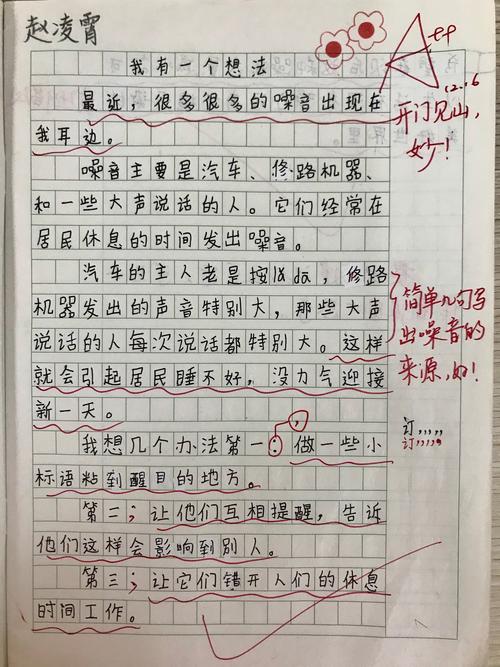 赵凌霄
我有一个想法
最近，很多很多的噪音出现在
我耳边。
噪音主要是汽车、修路机器、
和一些大声说话的人。它们经常在
居民休息的时间发出噪音。
汽车的主人老是按lǎ da，修路
机器发出的声音特别大，那些大声
说话的人每次说话都特别大。这样
就会引起居民睡不好，没力气迎接
新一天。
我想几个办法第一：做一些小
标语粘到醒目的地方。
第二；让他们互相提醒，告诉
他们这样会影响到别人。
第三；让它们错开人们的休息
时间工作。
A
++
12.16
开门见山，
妙！
简单几句写
出噪音的
来源，好！
，
订，，，，，
订，，，，，